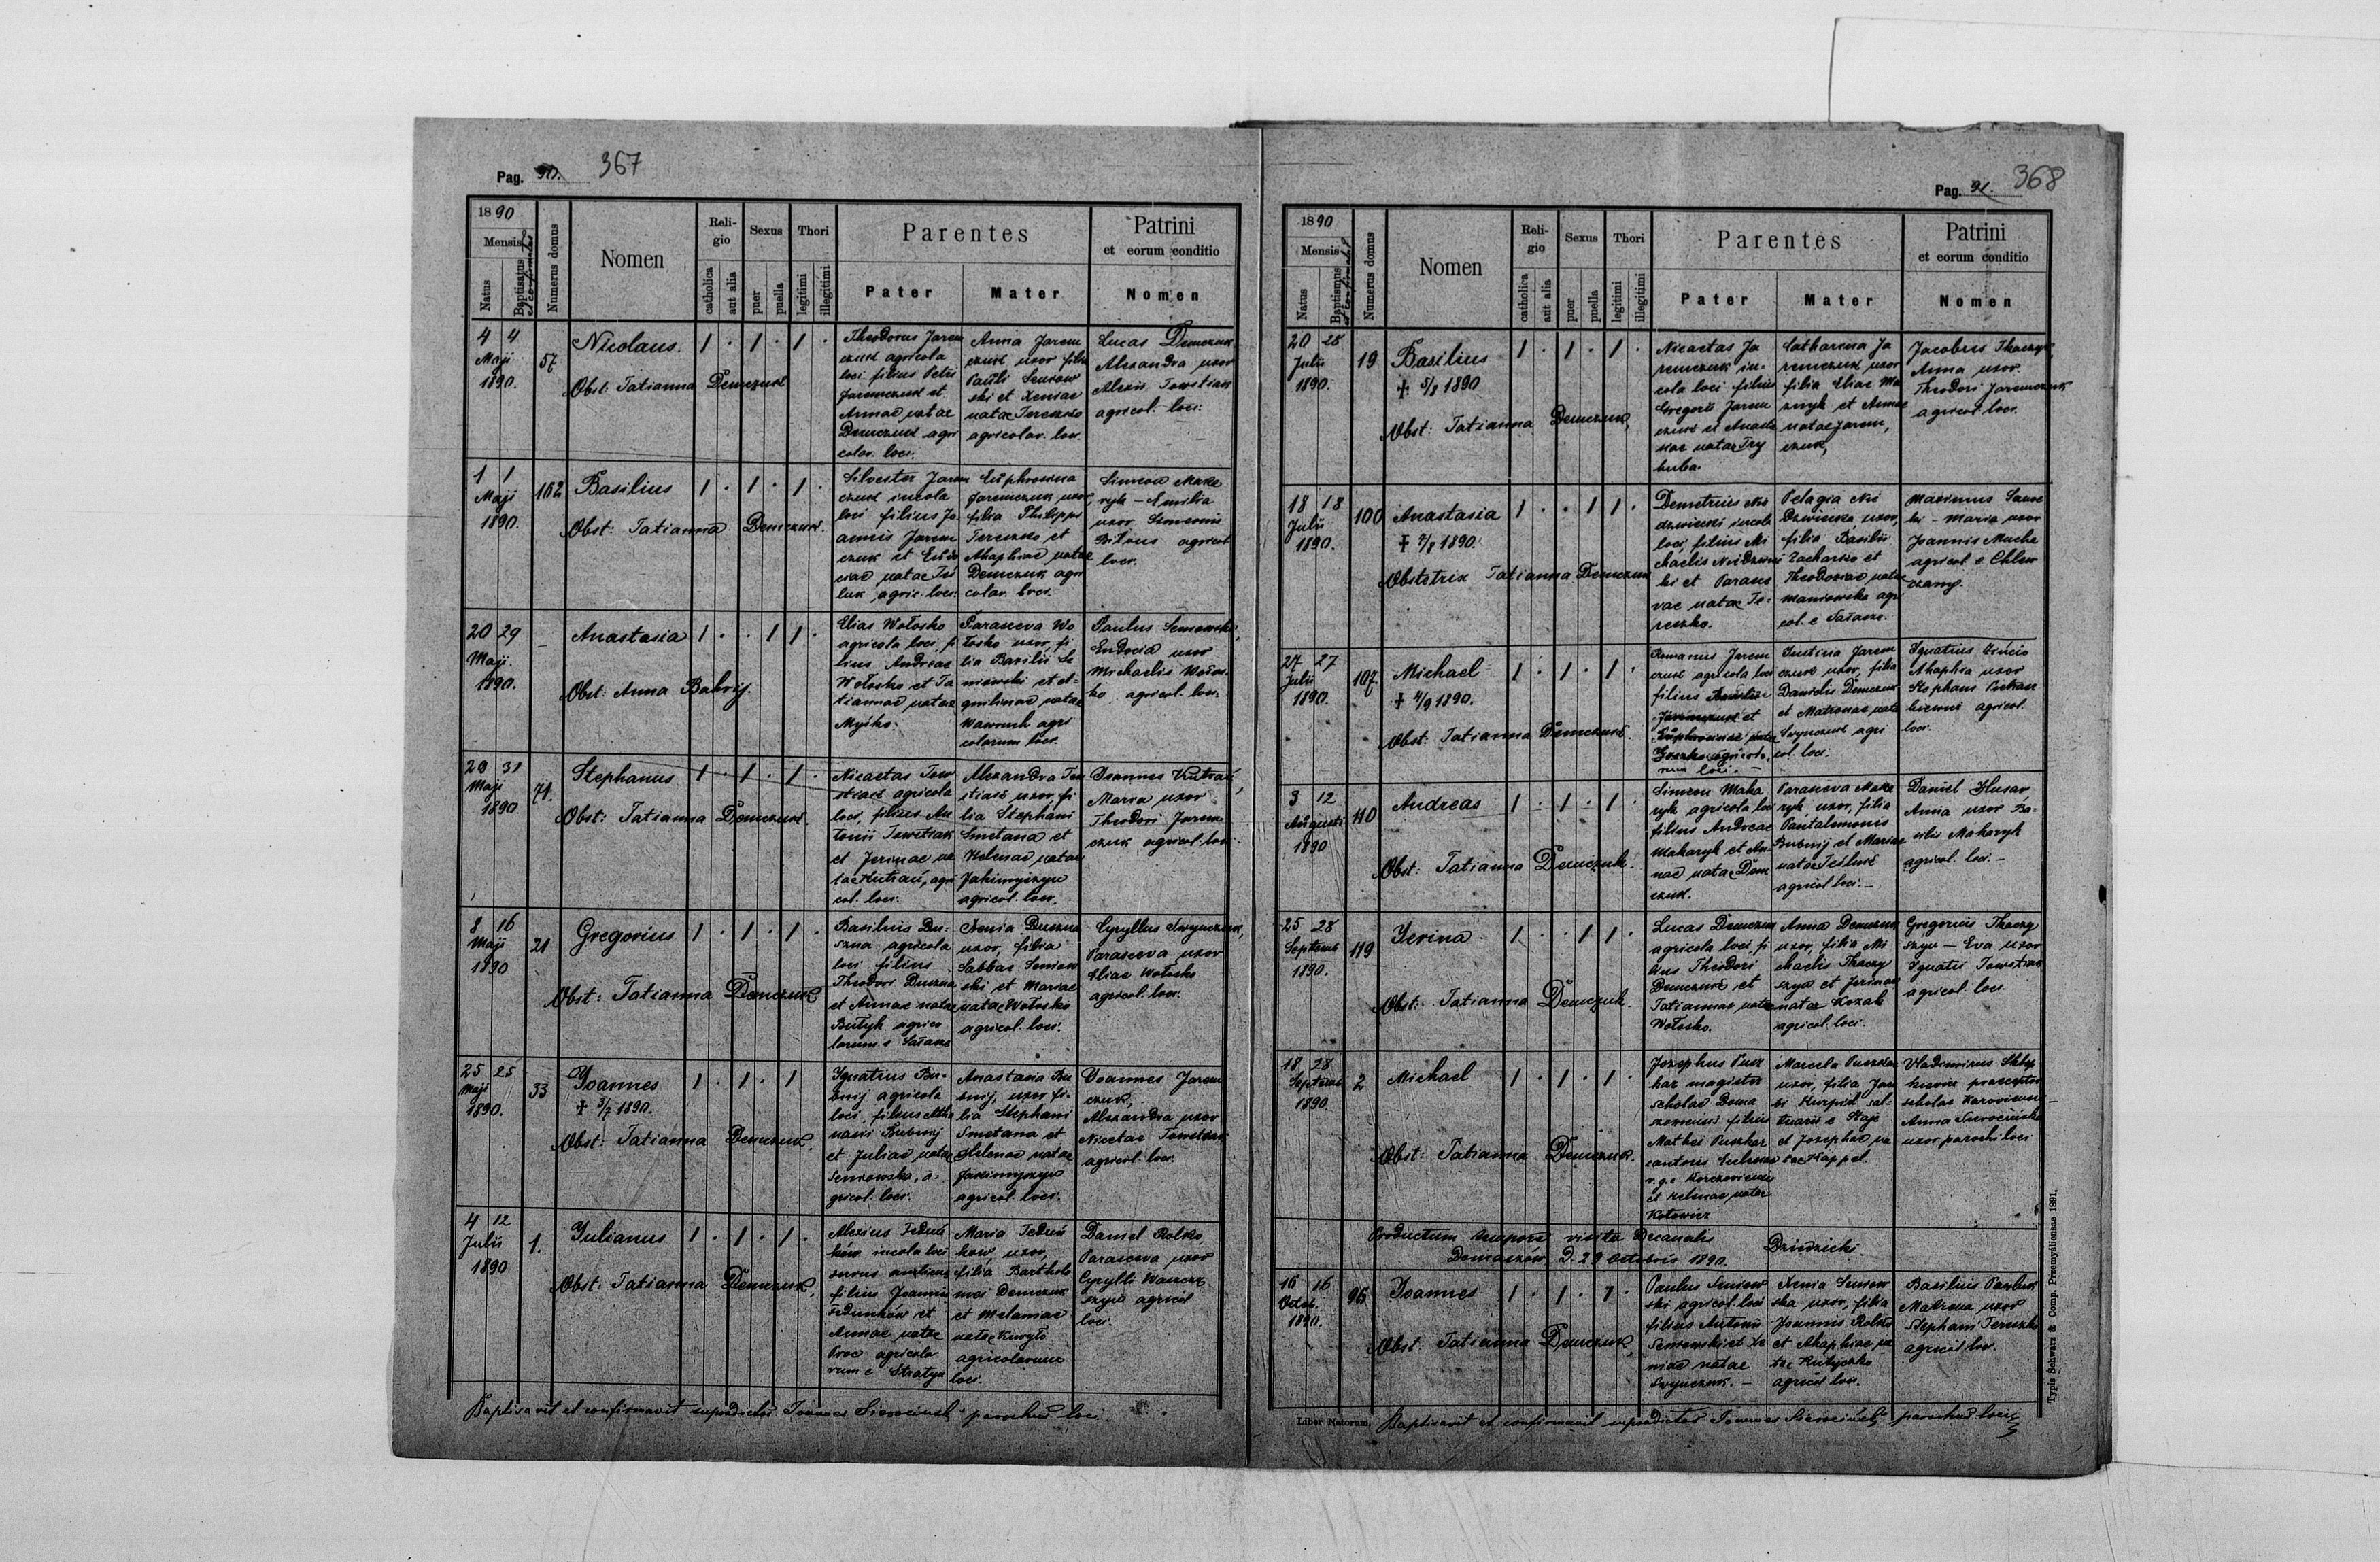 Pag. 90. 367
1890
Mensis
Natus
Baptisatus et confirmatus
Numerus domus
Nomen
Religio
catholica
aut alia
Sexus
puer
puella
Thori
legitimi
illegitimi
Parentes
Pater
Mater
Patrini
et eorum conditio
Nomen
4 4
Maji
1890.
57
Nicolaus.
Obst: Tatianna Demczuk
1 . 1 . 1 .
Theodorus Jarem
czuk agricola
loci filius Petri
Jaremczuk et
Annae natae
Demczuk agri
colar. loci.
Anna Jarem
czuk uxor filia
Pauli Seniow
ski et Xeniae
natae Tereszko
agricolar. loci.
Lucas Demczuk
Alexandra uxor
Alexii Tewstiak
agricol. loci.
1 1
Maji
1890.
162
Basilius
Obst: Tatianna Demczuk.
1 . 1 . 1 .
Silvester Jarem
czuk incola
loci filius Jo
annis Jarem
czuk et
natae
agric. loci.
Euphrosina
Jaremczuk uxor
filia Philippi
Tereszko et
Ahaphiae natae
Demczuk agri
colar. loci.
Simeon Maka
ryk – Emilia
uxor Simeonis
agricol
loci.
20 29
Maji
1890.
–
Anastasia
Obst: Anna Babrij.
1 . . 1 1 .
Elias Wołosko
agricola loci fi
lius Andreae
Wołosko et Ta
tiannae natae
Myśko.
Parasceva Wo
łosko uxor, fi
lia Basilii Se
niowski et A
quilinae natae
Wawruch agri
colarum loci.
Paulus Seniowski,
Eudocia uxor
Michaelis Wołos
ko agricol. loci.
29 31
Maji
1890.
71.
Stephanus
Obst: Tatianna Demczuk.
1 . 1 . 1 .
Nicaetas Tew
stiak agricola
loci, filius An
tonii Tewstiak
et Jerinae na
tae Kutrań, agri
col. loci.
Alexandra Tew
stiak uxor, fi
lia Stephani
Smetana et
Helenae natae
Jakimyszyn
agricol. loci.
Joannes Kutrań,
Maria uxor
Theodori Jarem
czuk agricol. loci
8 16
Maji
1890
21
Gregorius
Obst: Tatianna Demczuk
1 . 1 . 1 .
Basilius Du-
szna agricola
loci filius
Theodori Duszna
et Annae natae
Butyk agrico
larum e Sałasze
Xenia Duszna
uxor, filia
Sabbae Seniow
ski et Mariae
natae Wołosko
agricol. loci.
Cyryllus Swynczuk,
Parasceva uxor
Eliae Wołosko
agricol. loci.
25 25
Maji
1890.
33
Joannes
† 3/7 1890.
Obst: Tatianna Demczuk.
1 . 1 . 1
Ignatius Bu-
bnij agricola
loci, filius Atha
nasii Bubnij
et Juliae natae
Seniowska, a-
gricol. loci.
Anastasia Bu
bnij, uxor fi-
lia Stephani
Smetana et
Helenae natae
Jakimyszyn
agricol. loci.
Joannes Jarem
czuk,
Alexandra uxor
Nicetae Tewstiak
agricol. loci.
4 12
Julii
1890
1.
Julianus
Obst: Tatianna Demczuk,
1 . 1 . 1 .
Alexius Feduń
ków incola loci
servus
filius Joannis
Fedunków et
Annae natae
Proc agricola
rum e Stratyn
Maria Feduń
ków, uxor,
filia Bartholo
mei Demczuk
et Melaniae
natae Kuryło
agricolarum
loci.
Daniel Rolko
Parasceva uxor
Cyrylli
agricol
loci.
Baptisavit et confirmavit supradictos Joannes Sierociński parochus loci
Pag. 91. 368
1890
Mensis
Natus
Baptismus et confirmatus
Numerus domus
Nomen
Religio
catholica
aut alia
Sexus
puer
puella
Thori
legitimi
illegitimi
Parentes
Pater
Mater
Patrini
et eorum conditio
Nomen
20 28
Julii
1890.
19
Basilius
† 5/8 1890
Obst: Tatianna Demczuk,
1 . 1 . 1 .
Nicaetas Ja
remczuk in-
cola loci filius
Gregorii Jarem
czuk et Anasta
siae natae Try
huba.
Catharina Ja
remczuk uxor
filia Eliae Ma
et Annae
natae Jarem,
czuk,
Jacobus Tkaczyk,
Anna uxor
Theodori Jaremczuk
agricol. loci.
18 18
Julii
1890.
100
Anastasia
† 7/8 1890.
Obstetrix Tatianna Demczuk
1 . . 1 1 .
Demetrius Nie
dzwiecki incola
loci, filius Mi
chaelis Niedzwiec
ki et Parasce
vae natae Te-
reszko.
Pelagia Nie
dzwiecka uxor,
filia Basilii
Zacharko et
Theodosiae natae
Maniowska agri
col. e Sałasze.
Maximus Sawe
ki – Maria uxor
Joannis Mucha
agricol. e Chlew
czany.
27 27
Julii
1890.
107.
Michael
† 4/9 1890.
Obst: Tatianna Demczuk.
1 . 1 . 1 .
Romanus Jarem
czuk agricola loci
filius Basilii
Jaremczuk et
Euphrosinae natae
agricola,
rum loci. –
Justina Jarem
czuk uxor, filia
Danielis Demczuk
et Matronae natae
Swynczuk agri
col. loci.
Ignatius
Ahaphia uxor
Stephani
agricol.
loci.
3 12
Augusti
1890
110
Andreas
Obst: Tatianna Demczuk.
1 . 1 . 1 .
Simeon Maka
ryk agricola loci
filius Andreae
Makaryk et An-
nae natae Dem
czuk.
Parasceva Maka
ryk uxor, filia
Pantalemonis
Bubnij et Mariae
natae
agricol. loci. –
Daniel Husar
Anna uxor Ba-
silii Makaryk
agricol. loci. –
25 28
Septemb
1890.
119
Jerina
Obst. Tatianna Demczuk.
1 . . 1 1 .
Lucas Demczuk
agricola loci fi
lius Theodori
Demczuk et
Tatiannae natae
Wołosko.
Anna Demczuk
uxor, filia Mi
chaelis Tkaczy
szyn et Jerinae
natae Kozak
agricol. loci.
Gregorius Tkaczy
szyn – Eva uxor
Ignatii Tewstiak
agricol. loci.
18 28
Septemb
1890.
2
Michael
Obst: Tatianna Demczuk.
1 . 1 . 1 .
Josephus Pusz
kar magister
scholae Doma
szoviensis filius
Mathei Puszkar
cantoris Ecclesiae
r. g. e
et Helenae natae
Kotowicz
Marcela Puszkar
uxor, filia Jaco
bi sal-
tuarii e Staje
et Josephae na
tae Kappel.
Vladimirus
praeceptor
scholae Karoviensis
Anna Sierocińska
uxor parochi loci
Productum tempore visitae Decanalis
Domaszów D. 29 Octobris 1890. Dzindzicki
16 16
Octob.
1890.
96
Joannes
Obst. Tatianna Demczuk,
1 . 1 . 1 .
Paulus Seniow
ski agricol. loci
filius Antonii
Seniowski et Xe
niae natae
Swynczuk. –
Xenia Seniow
ska uxor, filia
Joannis Rolko
et Ahaphiae na
tae
agricol. loci.
Basilius Pawluk
Matrona uxor
Stephani Tereszko
agricol. loci.
Liber Natorum. Baptisavit et confirmavit supradictos Joannes Sierociński parochus loci
Typis Schwarz & Comp. Przemyśliensae 1891.